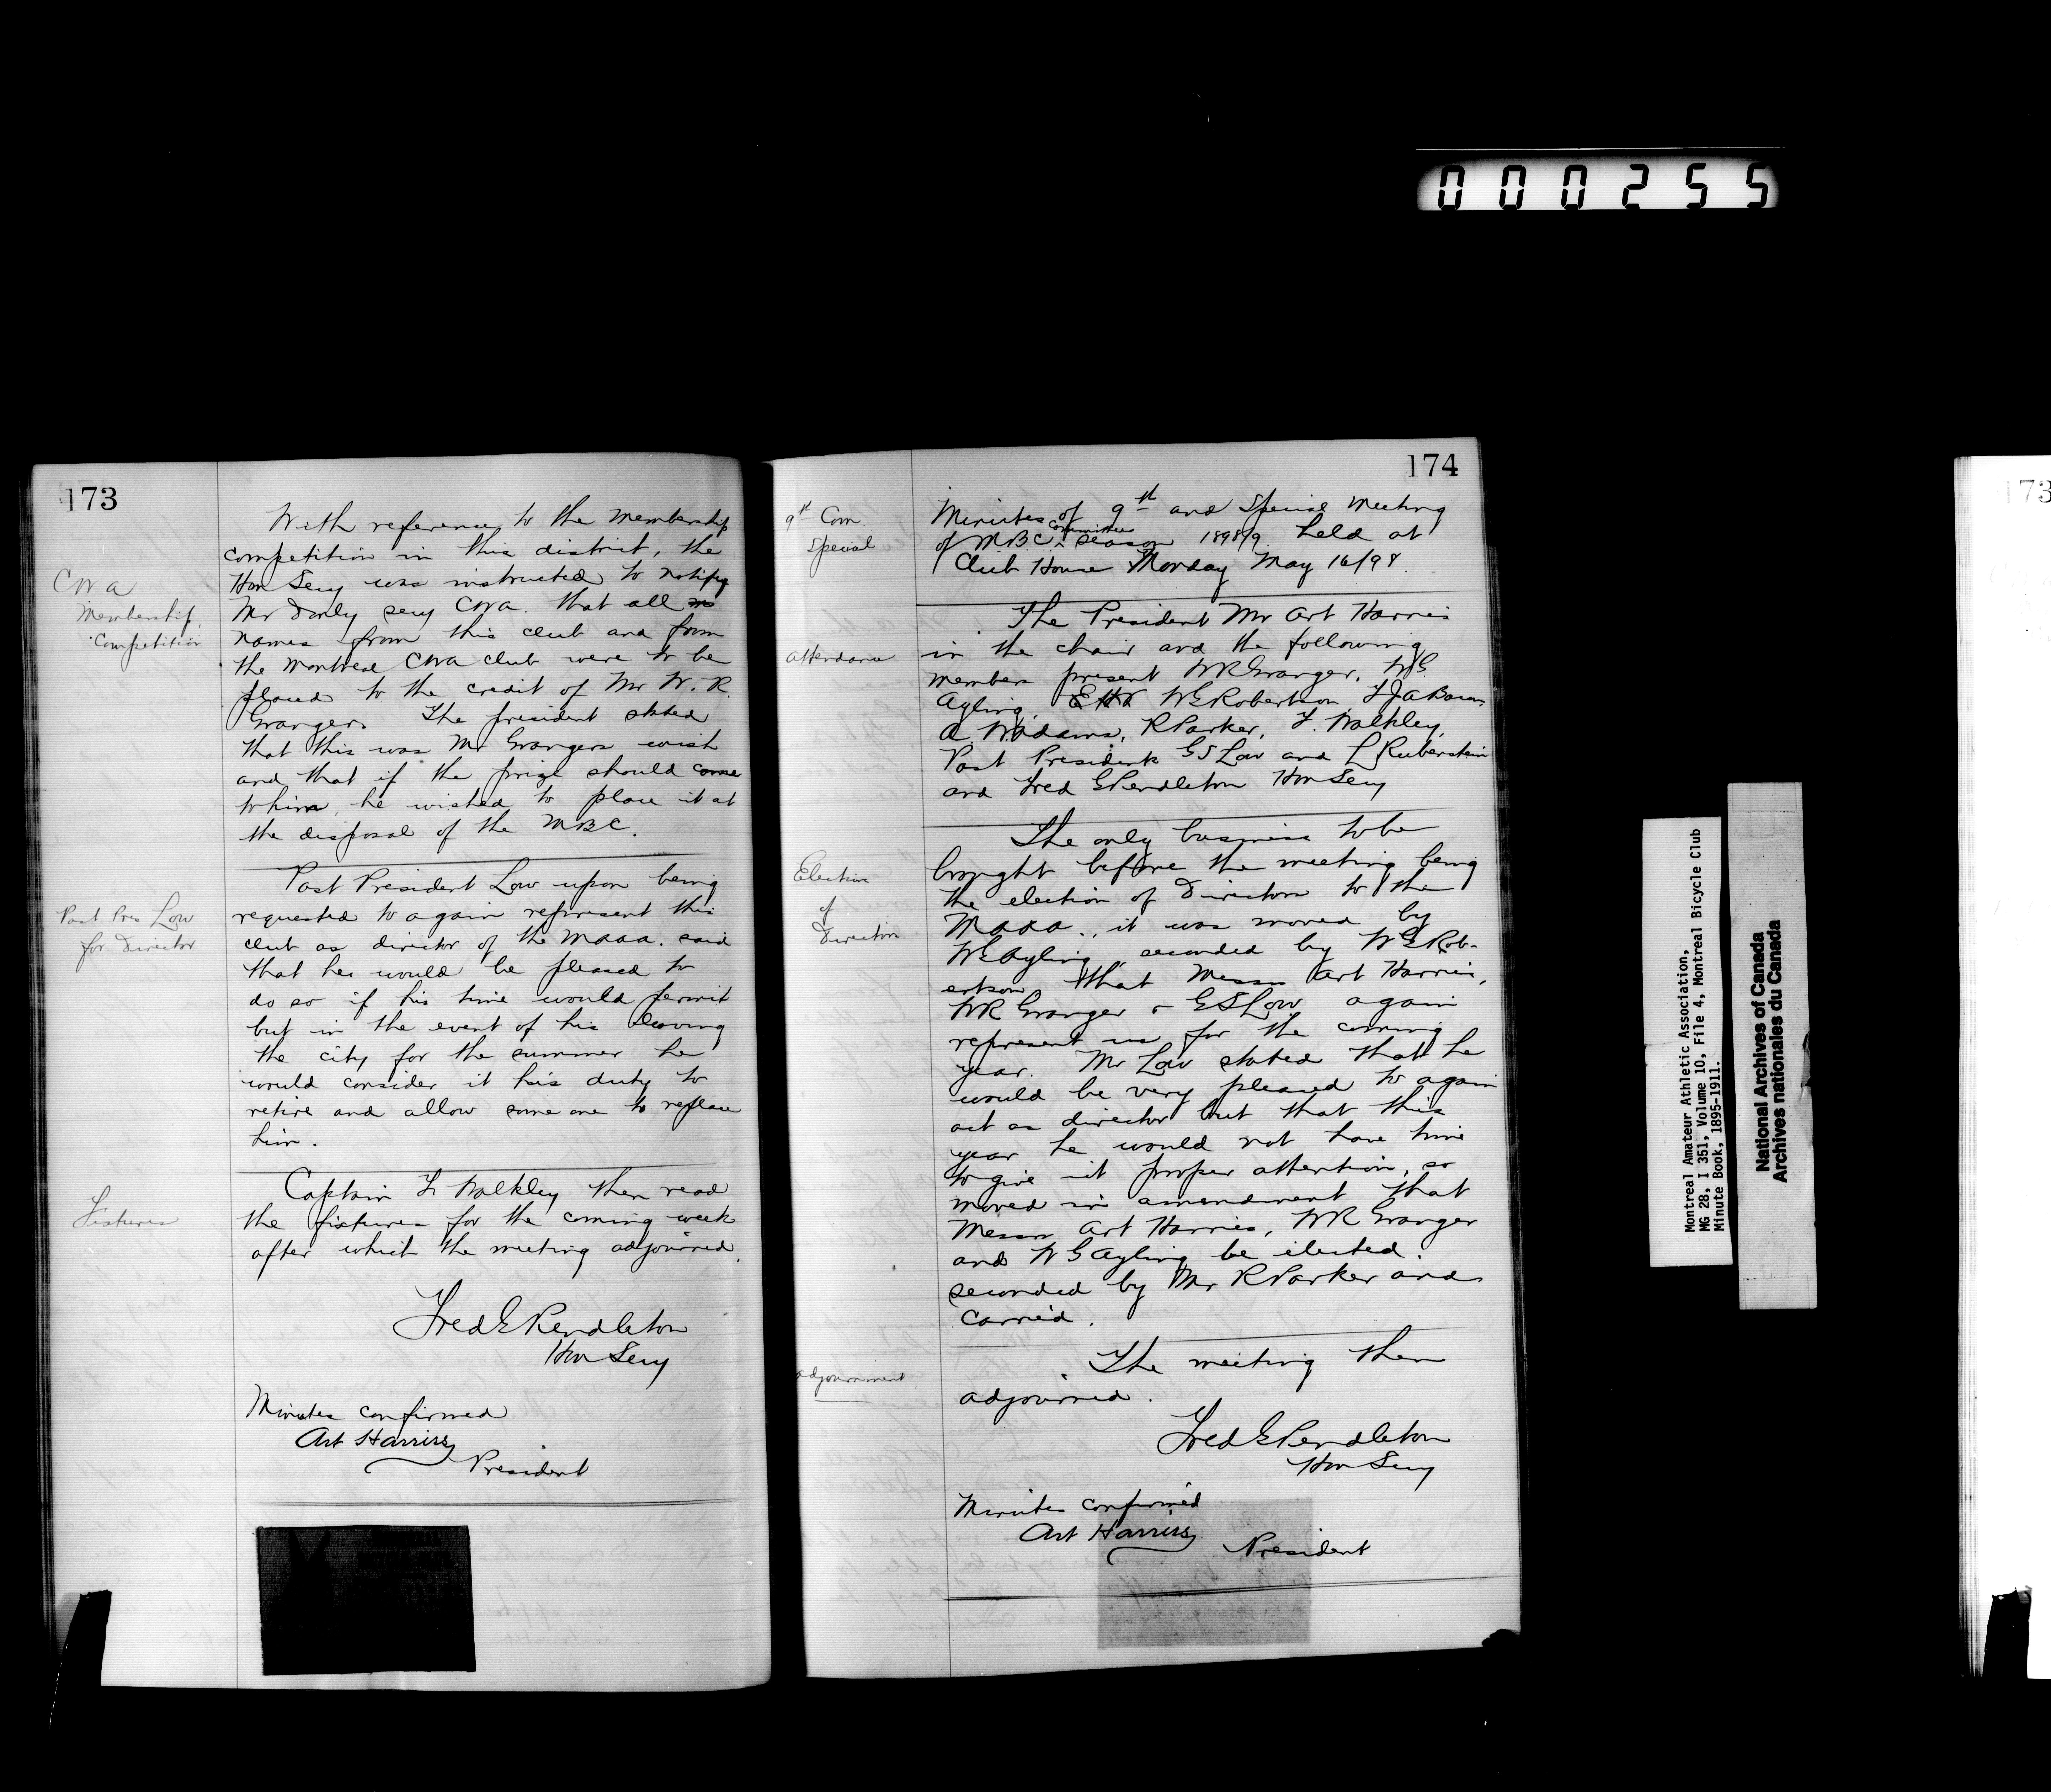 000255
173
With reference to the membership
competition in this district, the
Hon Secy was instructed to notify
Mr Donly secy CWA. that all
names from this club and from
the Montreal CWA club were to be
placed to the credit of Mr W. R.
Granger. The president stated
that this was Mr Grangers wish
and that if the prize should come
to him, he wished to place it at
the disposal of the MBC.
CWA
Membership
Competition
Past President Low upon being
requested to again represent this
club as director of the MAAA. said
that he would be pleased to
do so if his time would permit
but in the event of his leaving
the city for the summer he
would consider it his duty to
retire and allow some one to replace
him.
Past Pres Low
for Director
Captain F. Walkley then read
the fixtures for the coming week
after which the meeting adjourned.
Fixtures
Fred G Pendleton
Hon Secy
Minutes confirmed
Art Harriss
President
174
Minutes of 9th and Special Meeting
of MBC Committee season 1898/9 held at
Club House Monday May 16/98.
9th Com
Special
The President Mr Art Harris
in the chair and the following
members present WR Granger, WG
Ayling WG Robertson, F J A
A W Adams, R Parker, F. Walkley,
Past Presidents GS Low and L Rubenstein
and Fred G Pendleton Hon Secy
Attendance
The only business to be
brought before the meeting being
the election of Directors to the
MAAA., it was moved by
WG Ayling, seconded by WG Rob-
ertson, that Messrs Art Harris,
WR Granger & GS Low again
represent us for the coming
year. Mr Low stated that he
would be very pleased to again
act as director but that this
year he would not have time
to give it proper attention, so
moved in amendment that
Messrs Art Harris, WR Granger
and W G Ayling be elected.
seconded by Mr R Parker and
carried.
Election
of
Directors
The meeting then
adjourned.
Adjournment
Fred G Pendleton
Hon Secy
Minutes confirmed
Art Harriss
President
Montreal Amateur Athletic Association,
MG 28, I 351, Volume 10, File 4, Montreal Bicycle Club
Minute Book, 1895-1911.
National Archives of Canada
Archives nationales du Canada
173